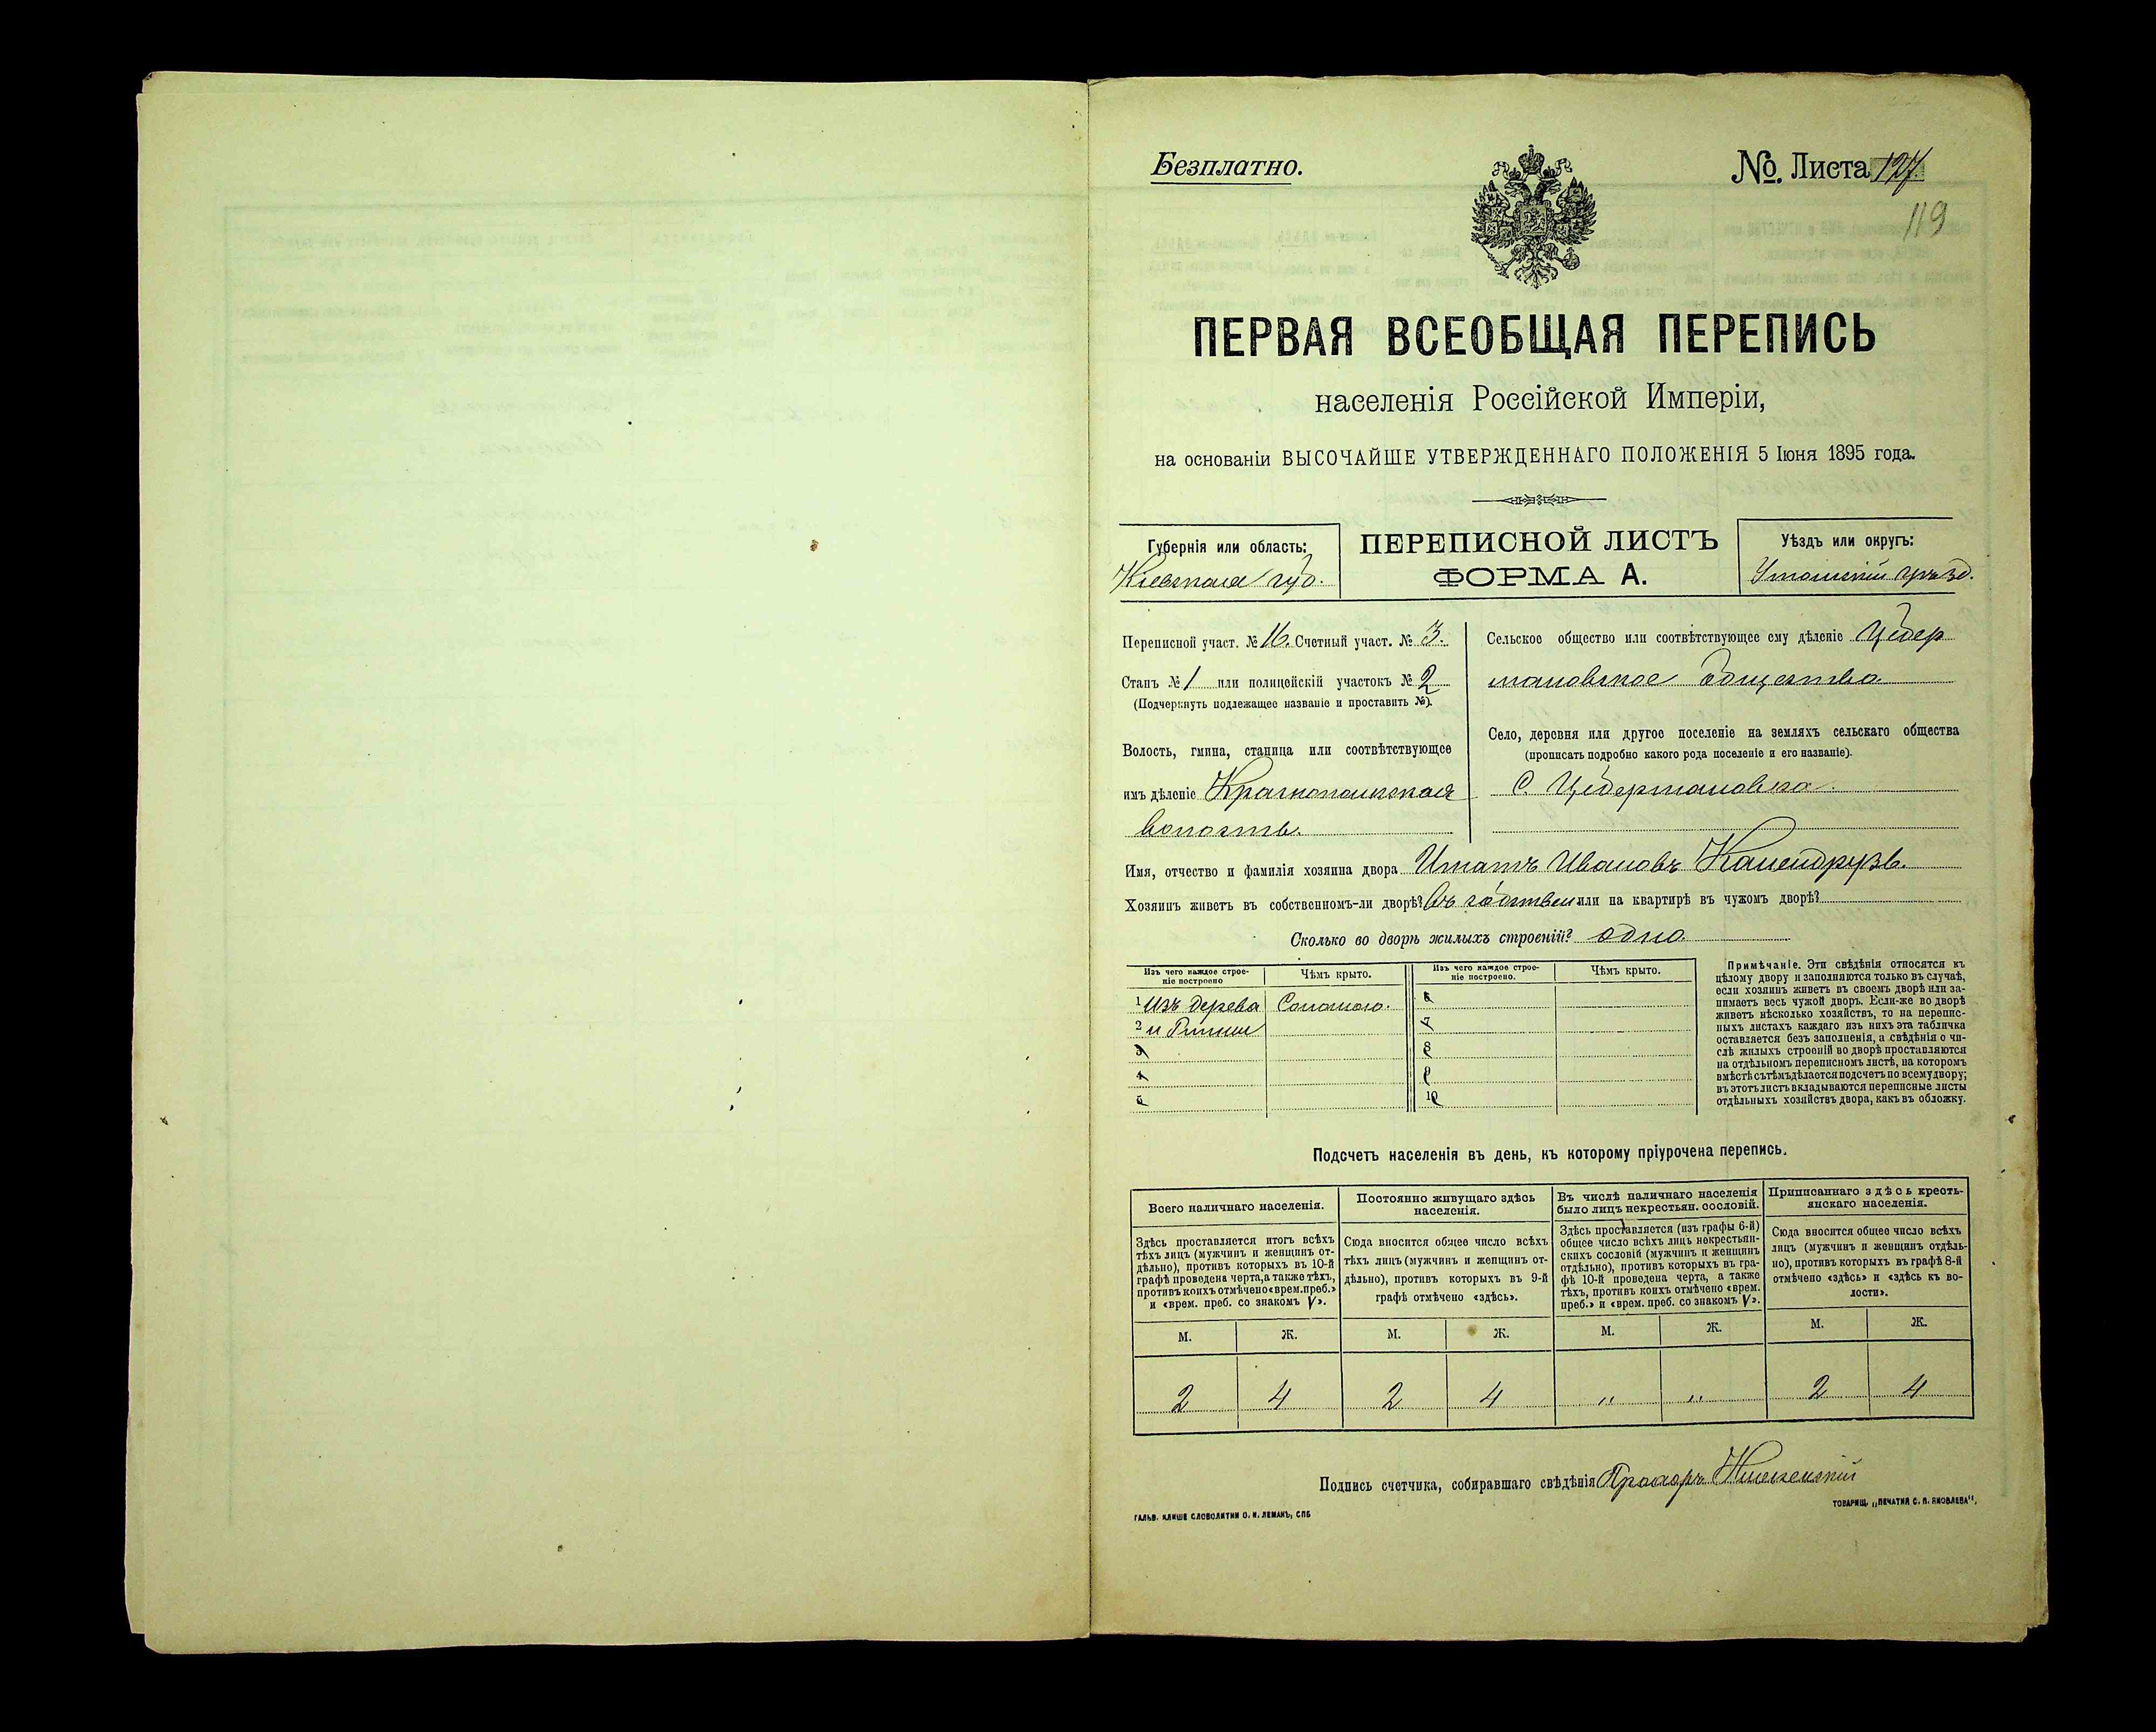 Безплатно.
№. Листа 127
119
ПЕРВАЯ ВСЕОБЩАЯ ПЕРЕПИСЬ
населенія Россійской Имперіи,
на основаніи ВЫСОЧАЙШЕ УТВЕРЖДЕННАГО ПОЛОЖЕНІЯ 5 Іюня 1895 года.
Губернія или область:
Кіевская губ.
ПЕРЕПИСНОЙ ЛИСТЪ
ФОРМА А.
Уѣздъ или округъ:
Уманскій уѣзд.
Переписной участ. № 16. Счетный участ. № 3.
Станъ № 1 или полицейскій участокъ № 2
(Подчеркнуть подлежащее названіе и проставить №).
Волость, гмина, станица или соотвѣтствующее
имъ дѣленіе Краснопольская
волость.
Сельское общество или соотвѣтствующее ему дѣленіе Цебер
мановское общество
Село, деревня или другое поселеніе на земляхъ сельскаго общества
(прописать подробно какого рода поселеніе и его названіе).
С. Цебермановка
Имя, отчество и фамилія хозяина двора Игнатъ Ивановъ
Хозяинъ живетъ въ собственномъ-ли дворѣ? Въ собствен или на квартирѣ въ чужомъ дворѣ?
Сколько во дворѣ жилыхъ строеній? одно
Изъ чего каждое строе-
ніе построено
Чѣмъ крыто.
Изъ чего каждое строе-
ніе построено.
Чѣмъ крыто.
1 Изъ дерева Соломою. 6
2 и Глины 7
3 8
4 9
5 10
Примѣчаніе. Эти свѣдѣнія относятся къ
цѣлому двору и заполняются только въ случаѣ,
если хозяинъ живетъ въ своемъ дворѣ или за-
нимаетъ весь чужой дворъ. Если-же во дворѣ
живетъ нѣсколько хозяйствъ, то на перепис-
ныхъ листахъ каждаго изъ нихъ эта табличка
оставляется безъ заполненія, а свѣдѣнія о чи-
слѣ жилыхъ строеній во дворѣ проставляются
на отдѣльномъ переписномъ листѣ, на которомъ
вмѣстѣ съ тѣмъ дѣлается подсчетъ по всему двору;
въ этотъ листъ вкладываются переписные листы
отдѣльныхъ хозяйствъ двора, какъ въ обложку.
Подсчетъ населенія въ день, къ которому пріурочена перепись.
Всего наличнаго населенія.
Здѣсь проставляется итогъ всѣхъ
тѣхъ лицъ (мужчинъ и женщинъ от-
дѣльно), противъ которыхъ въ 10-й
графѣ проведена черта, а также тѣхъ,
противъ коихъ отмѣчено «врем. преб.»
и «врем. преб. со знакомъ V».
Постоянно живущаго здѣсь
населенія.
Сюда вносится общее число всѣхъ
тѣхъ лицъ (мужчинъ и женщинъ от-
дѣльно), противъ которыхъ въ 9-й
графѣ отмѣчено «здѣсь».
Въ числѣ наличнаго населенія
было лицъ некрестьян. сословій.
Здѣсь проставляется (изъ графы 6-й)
общее число всѣхъ лицъ некрестьян-
скихъ сословій (мужчинъ и женщинъ
отдѣльно), противъ которыхъ въ гра-
фѣ 10-й проведена черта, а также
тѣхъ, противъ коихъ отмѣчено «врем.
преб.» и «врем. преб. со знакомъ V».
Приписаннаго здѣсь кресть-
янскаго населенія.
Сюда вносится общее число всѣхъ
лицъ (мужчинъ и женщинъ отдѣль-
но), противъ которыхъ въ графѣ 8-й
отмѣчено «здѣсь» и «здѣсь къ во-
лости».
М. Ж. М. Ж. М. Ж. М. Ж.
2 4 2 4 " " 2 4
Подпись счетчика, собиравшаго свѣдѣнія Прохоръ
ГАЛЬВ. КЛИШЕ СЛОВОЛИТНИ О. И. ЛЕМАНЪ, СПБ
ТОВАРИЩ. „ПЕЧАТНЯ С. П. ЯКОВЛЕВА".